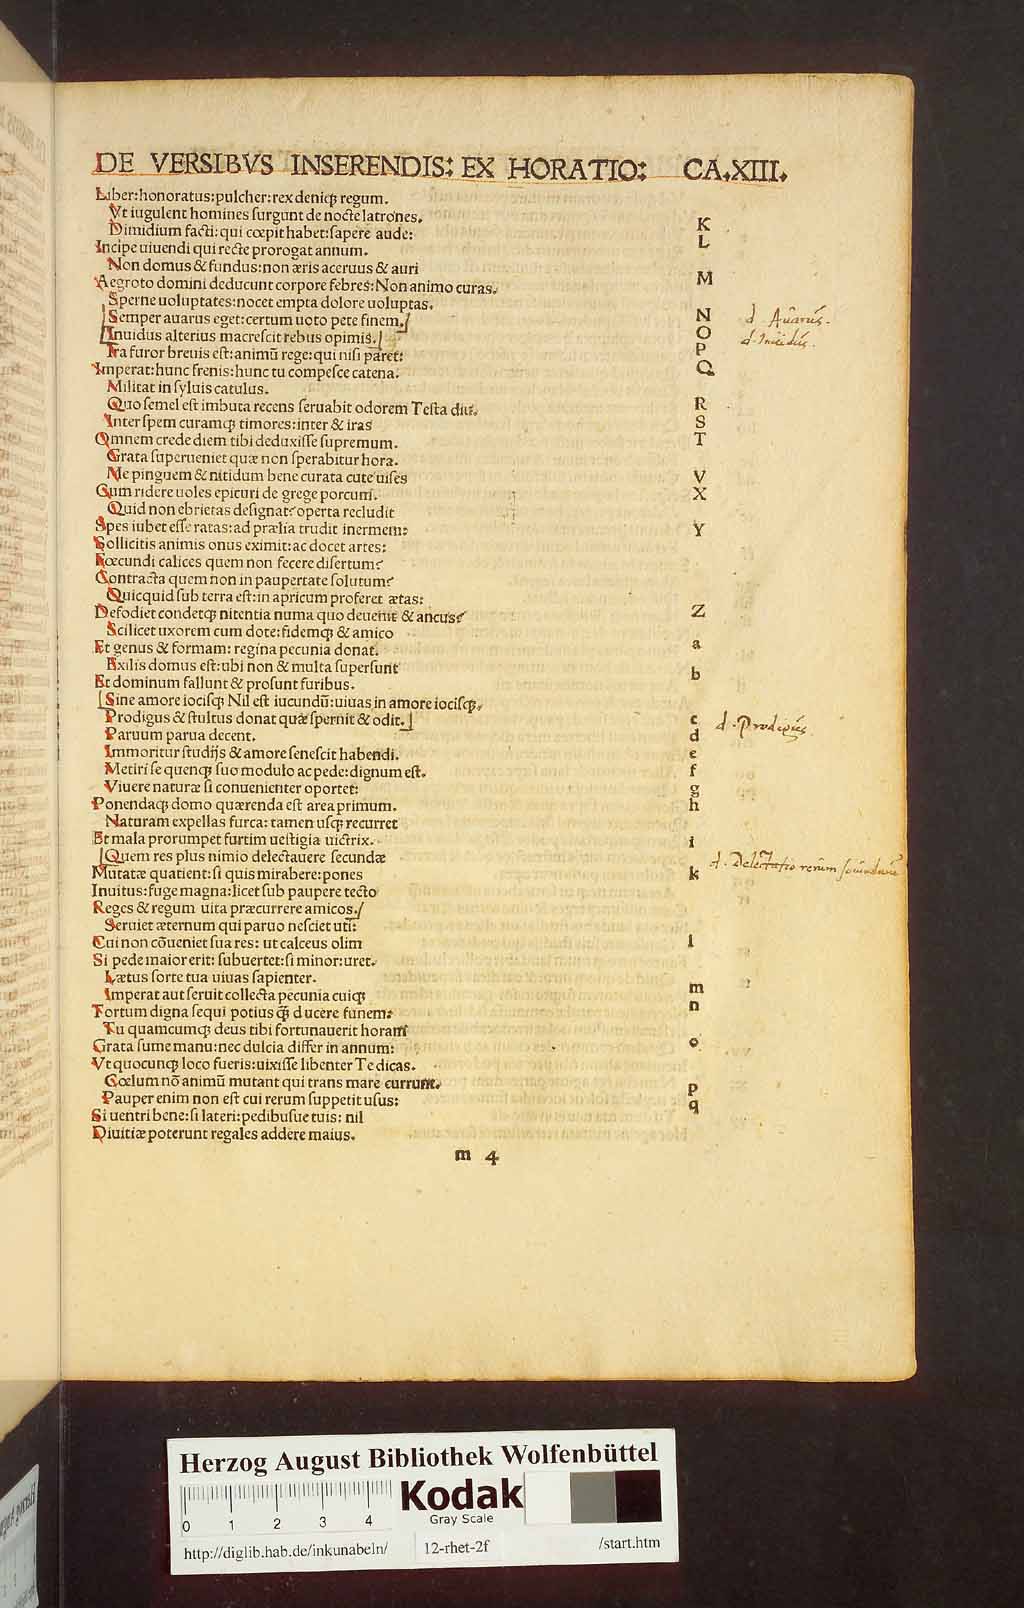 DE VERSIBVS INSERENDIS: EX HORATIO: CA.XIII.
Liber:honoratus:pulcher:rex deniqꝫ regum.
Vt iugulent homines ſurgunt de nocte latrones. K
Dimidium facti:qui cœpit habet:ſapere aude: L
Incipe uiuendi qui recte prorogat annum.
Non domus & fundus:non æris aceruus & auri M
Aegroto domini deducunt corpore febres:Non animo curas.
Sperne uoluptates:nocet empta dolore uoluptas. N
Semper auarus eget:certum uoto pete finem. O d Auarus.
Inuidus alterius macreſcit rebus opimis. P d. Inuidus.
Ira furor breuis eſt:animū rege:qui niſi paret: Q
Imperat:hunc frenis:hunc tu compeſce catena.
Militat in ſyluis catulus.
Quo ſemel eſt imbuta recens ſeruabit odorem Teſta diu. R
Inter ſpem curamqꝫ timores:inter & iras S
Omnem crede diem tibi deduxiſſe ſupremum. T
Grata ſuperueniet quæ non ſperabitur hora.
Me pinguem & nitidum bene curata cute uiſes V
Cum ridere uoles epicuri de grege porcum. X
Quid non ebrietas deſignat? operta recludit
Spes iubet eſſe ratas:ad prælia trudit inermem: Y
Sollicitis animis onus eximit:ac docet artes:
Fœcundi calices quem non fecere diſertum?
Contracta quem non in paupertate ſolutum?
Quicquid ſub terra eſt:in apricum proferet ætas:
Defodiet condetqꝫ nitentia numa quo deuenit & ancus? Z
Scilicet uxorem cum dote:fidemqꝫ & amico
Et genus & formam: regina pecunia donat. a
Exilis domus eſt:ubi non & multa ſuperſunt b
Et dominum fallunt & proſunt furibus.
Sine amore iociſqꝫ Nil eſt iucundū:uiuas in amore iociſqꝫ.
Prodigus & ſtultus donat quæ ſpernit & odit. c d. Prodigus.
Paruum parua decent. d
Immoritur ſtudijs & amore ſeneſcit habendi. e
Metiri ſe quenqꝫ ſuo modulo ac pede:dignum eſt. f
Viuere naturæ ſi conuenienter oportet: g
Ponendaqꝫ domo quærenda eſt area primum. h
Naturam expellas furca: tamen uſqꝫ recurret
Et mala prorumpet furtim ueſtigia uictrix. i
Quem res plus nimio delectauere ſecundæ d. Delectatio rerum secundarum
Mutatæ quatient:ſi quis mirabere:pones k
Inuitus:fuge magna:licet ſub paupere tecto
Reges & regum uita præcurrere amicos.
Seruiet æternum qui paruo neſciet uti:
Cui non cōueniet ſua res: ut calceus olim l
Si pede maior erit: ſubuertet:ſi minor:uret.
Lætus ſorte tua uiuas ſapienter. m
Imperat aut ſeruit collecta pecunia cuiqꝫ n
Tortum digna ſequi potius q̄ꝫ ducere funem:
Tu quamcumqꝫ deus tibi fortunauerit horam
Grata ſume manu:nec dulcia differ in annum: o
Vt quocunqꝫ loco fueris:uixiſſe libenter Te dicas.
Cœlum nō animū mutant qui trans mare currunt. p
Pauper enim non eſt cui rerum ſuppetit uſus: q
Si uentri bene:ſi lateri:pedibuſue tuis: nil
Diuitiæ poterunt regales addere maius.
m 4
Herzog August Bibliothek Wolfenbüttel
0 1 2 3 4
Kodak
Gray Scale
http://diglib.hab.de/inkunabeln/ 12-rhet-2f /start.htm